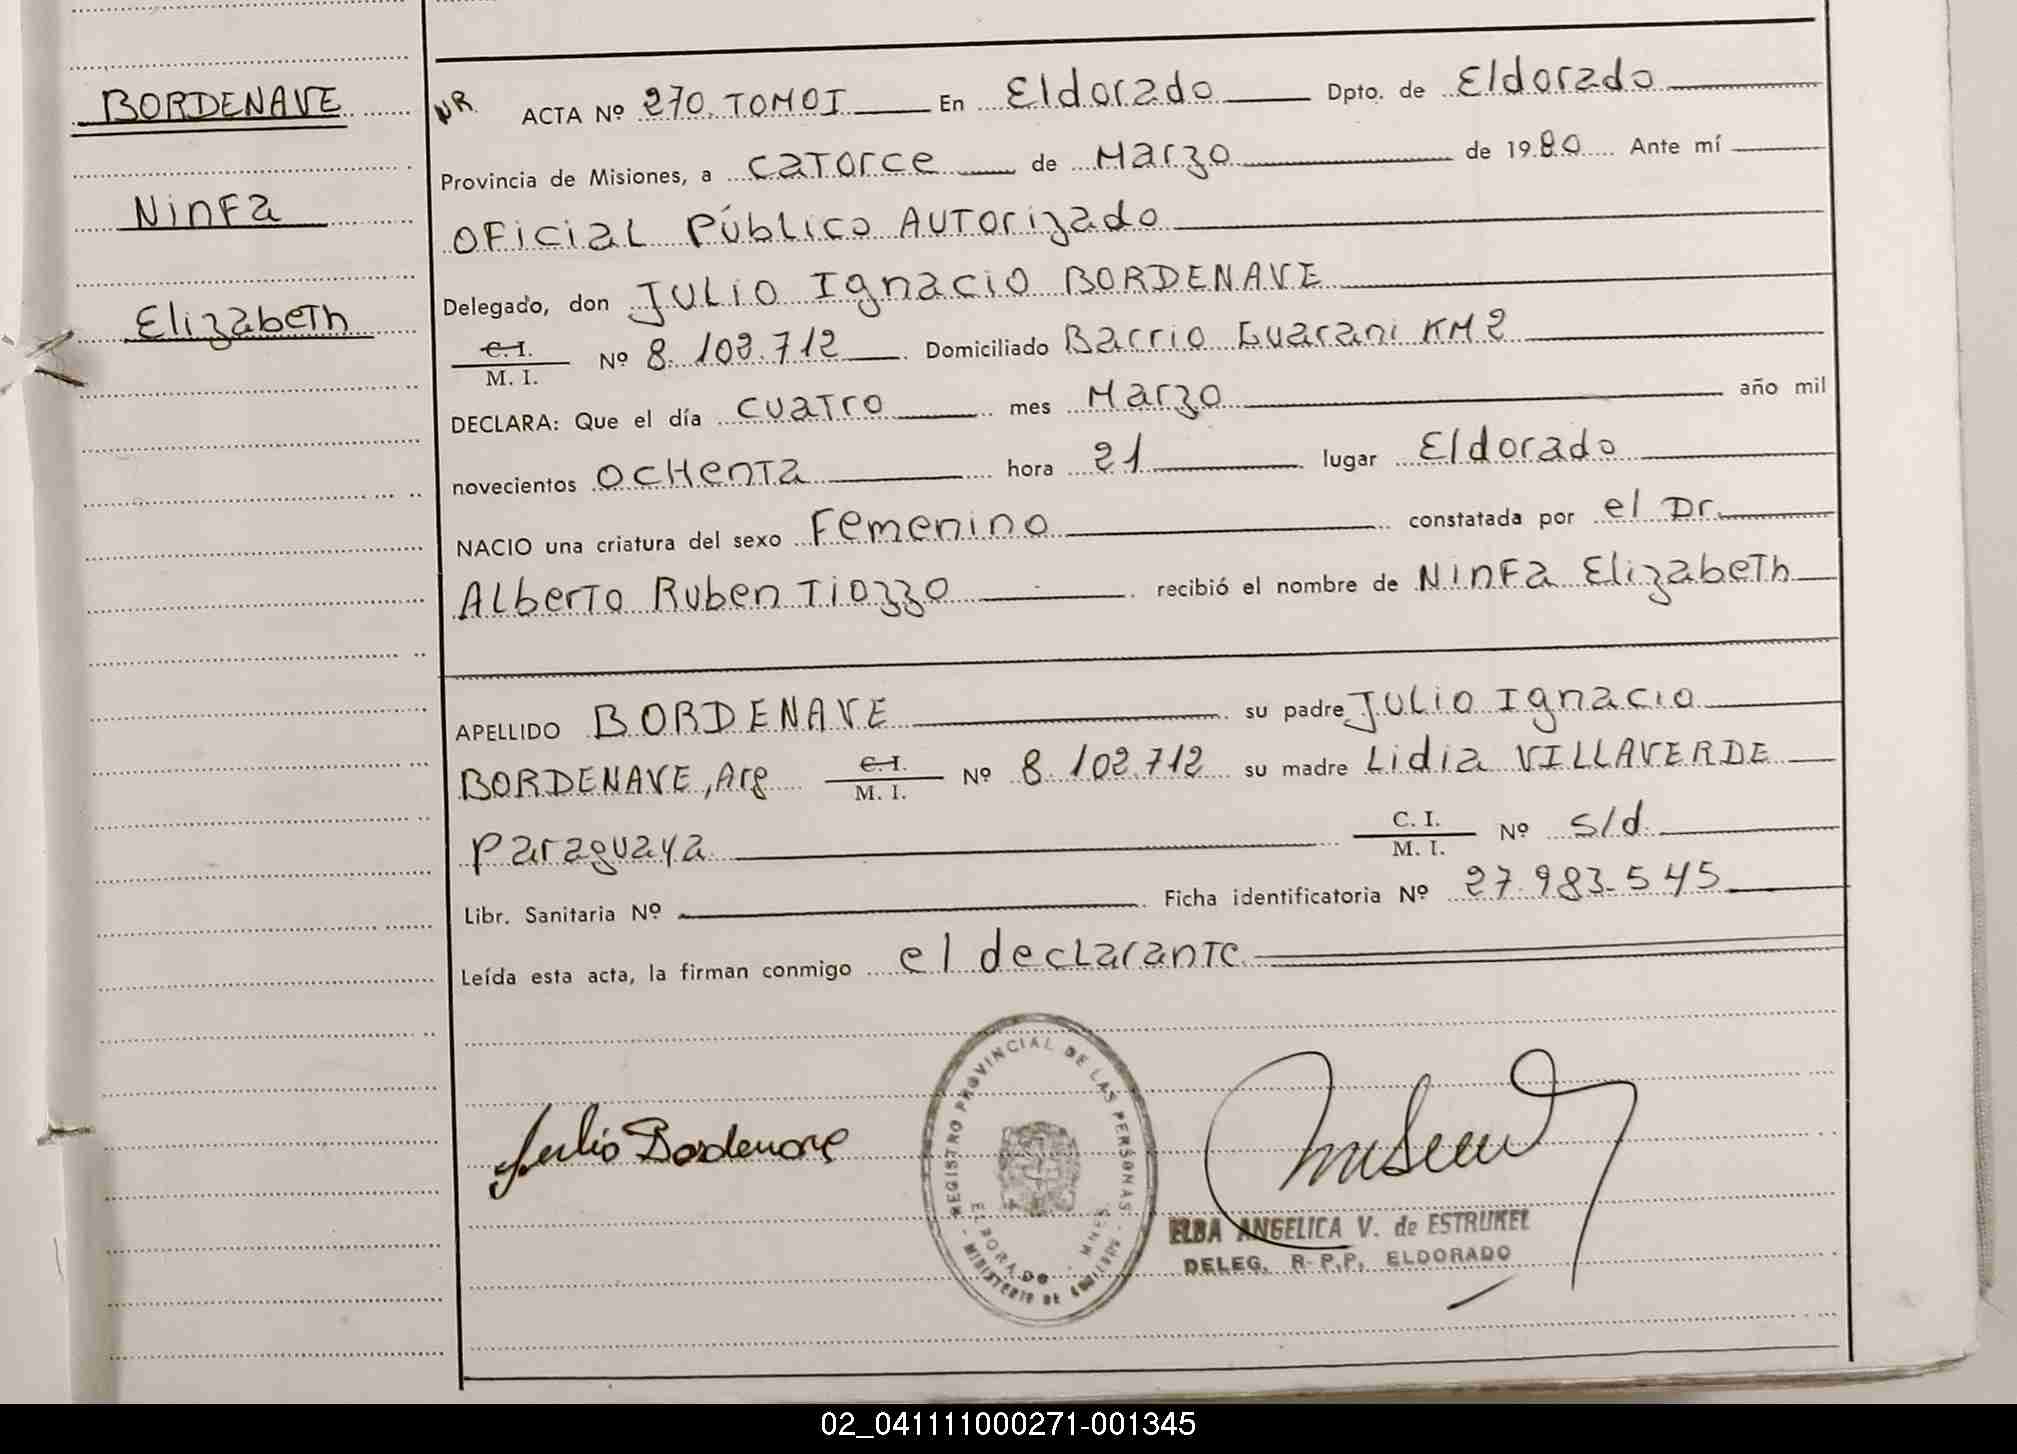 BORDENAVE
Ninfa
Elizabeth
NR. ACTA Nº 270. TOMO I En Eldorado Dpto. de Eldorado
Provincia de Misiones, a catorce de Marzo de 1980 Ante mí
Oficial Público Autorizado
Delegado, don Julio Ignacio BORDENAVE
C. I.
M. I. Nº 8.102.712 Domiciliado Barrio Guarani KM 2
DECLARA: Que el día cuatro mes Marzo año mil
novecientos ochenta hora 21 lugar Eldorado
NACIO una criatura del sexo Femenino constatada por el Dr.
Alberto Ruben Tiozzo recibió el nombre de Ninfa Elizabeth
APELLIDO BORDENAVE su padre Julio Ignacio
BORDENAVE, Arg C. I.
M. I. Nº 8.102.712 su madre Lidia VILLAVERDE
Paraguaya C. I.
M. I. Nº s/d.
Libr. Sanitaria Nº Ficha identificatoria Nº 27.983.545
Leída esta acta, la firman conmigo el declarante
Julio Bordenave
REGISTRO PROVINCIAL DE LAS PERSONAS
ELDORADO - MNES.
MINISTERIO DE
ELBA ANGELICA V. de ESTRUKEL
DELEG. R. P.P. ELDORADO
02_041111000271-001345